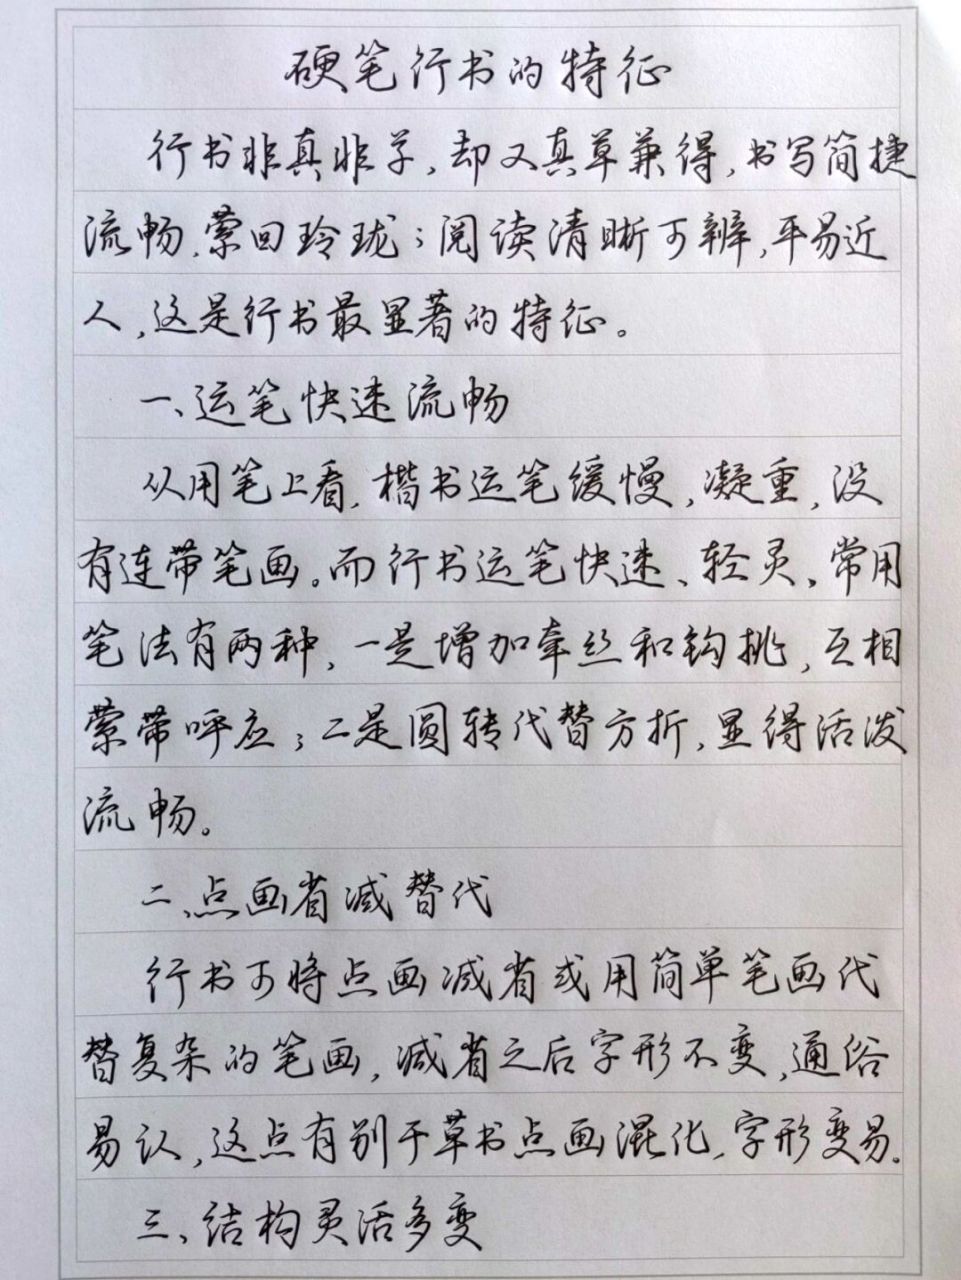 硬笔行书的特征
行书非真非草,却又真草兼得,书写简捷
流畅,萦回玲珑;阅读清晰可辨,平易近
人,这是行书最显著的特征。
一、运笔快速流畅
从用笔上看,楷书运笔缓慢,凝重,没
有连带笔画。而行书运笔快速、轻灵。常用
笔法有两种,一是增加牵丝和钩挑,互相
萦带呼应;二是圆转代替方折,显得活泼
流畅。
二、点画省减替代
行书可将点画减省或用简单笔画代
替复杂的笔画,减省之后字形不变,通俗
易认,这点有别于草书点画混化,字形变易。
三、结构灵活多变